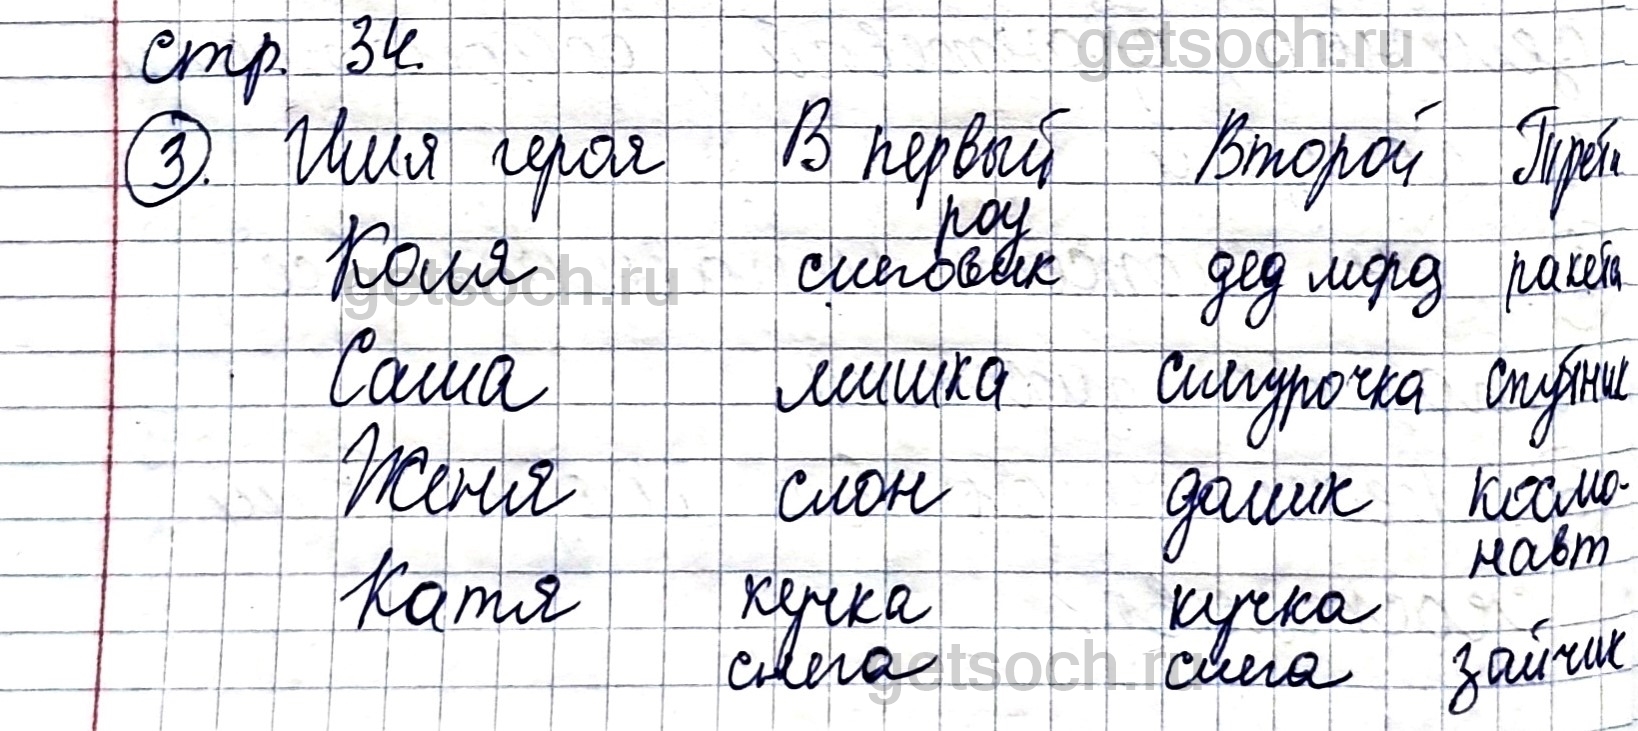 getsoch.ru
стр. 34.
3. Имя героя В первый Второй Трети
роу
Коля снеговик дед мороз ракета
getsoch.ru
Саша мишка снегурочка спутник
Женя слон домик космо-
навт
Катя кучка кучка
снега снега зайчик
getsoch.ru